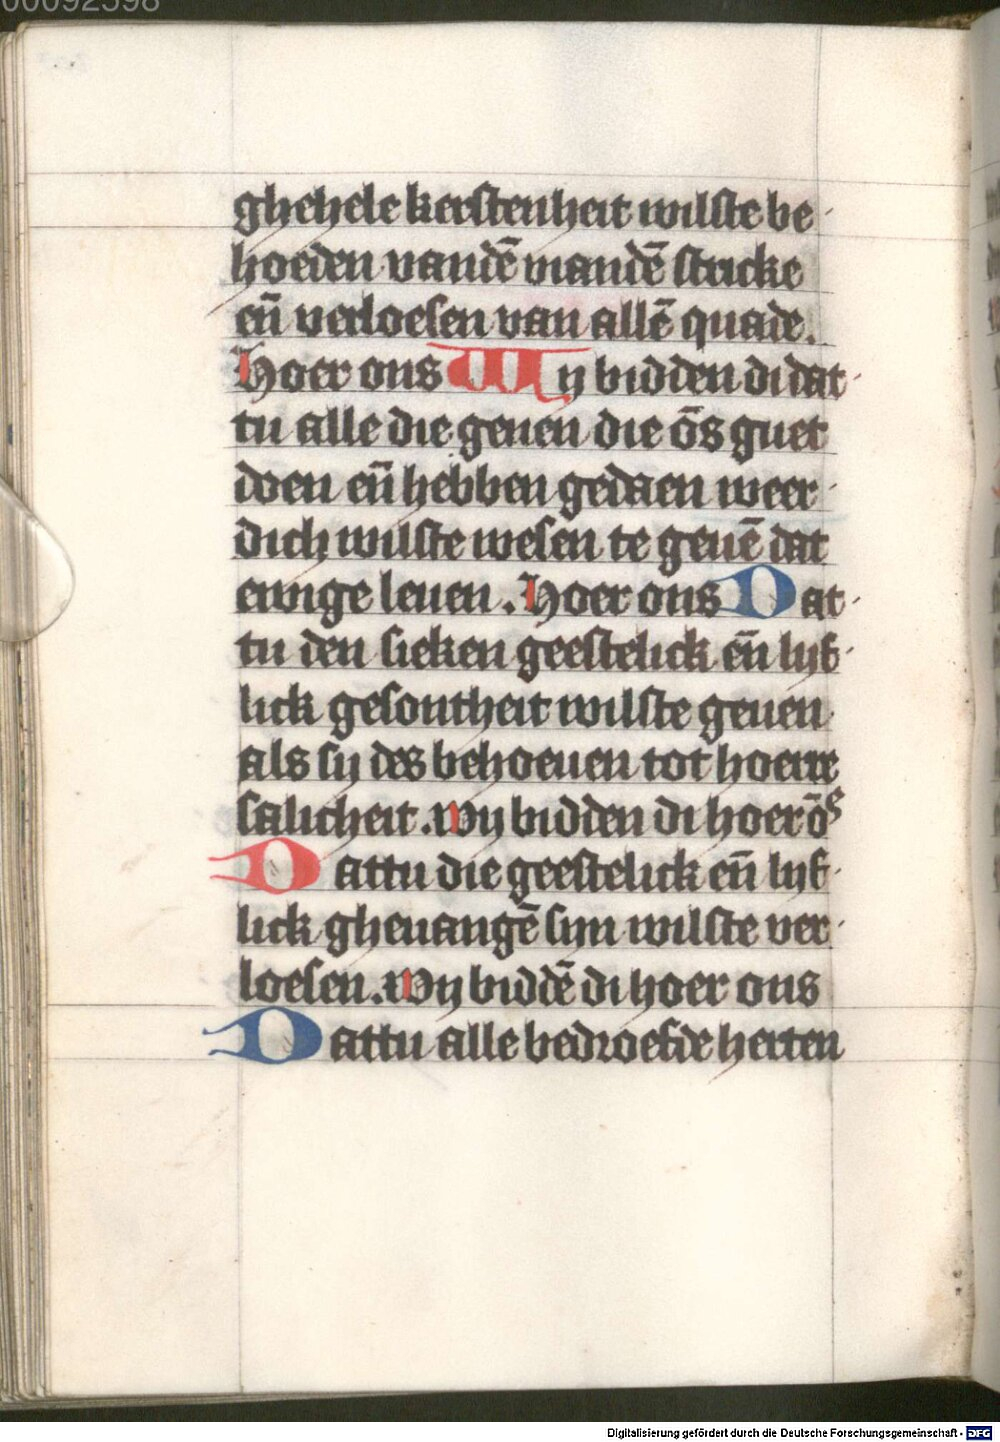 00092598
ghehele kerstenheit wilste be
hoeden vandē viandē stricke
eñ verloesen van allē quade.
Hoer ons Wy bidden di dat
tu alle die genen die ōs guet
doen eñ hebben gedaen weer
dich wilste wesen te geuē dat
ewige leuen. Hoer ons Dat
tu den sieken geestelick eñ lijf
lick gesontheit wilste geuen
als sy des behoeuen tot hoerre
salicheit. Wy bidden di hoer ōs
Dattu die geestelick eñ lijf
lick gheuangē sijn wilste ver
loesen. Wy biddē di hoer ons
Dattu alle bedroefde herten
Digitalisierung gefördert durch die Deutsche Forschungsgemeinschaft - DFG